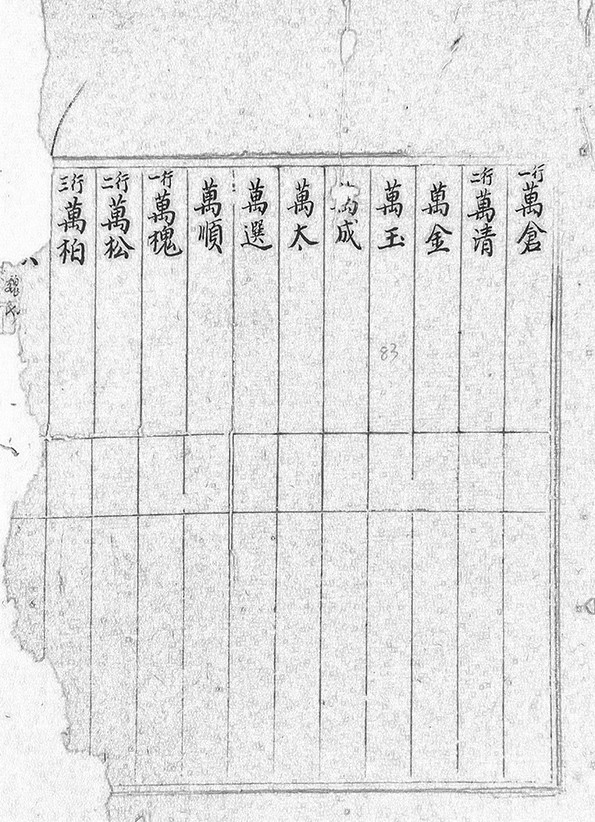 一行萬倉
二行萬清
萬金
萬玉
萬成
萬太
萬選
萬順
一行萬槐
二行萬松
三行萬柏
83